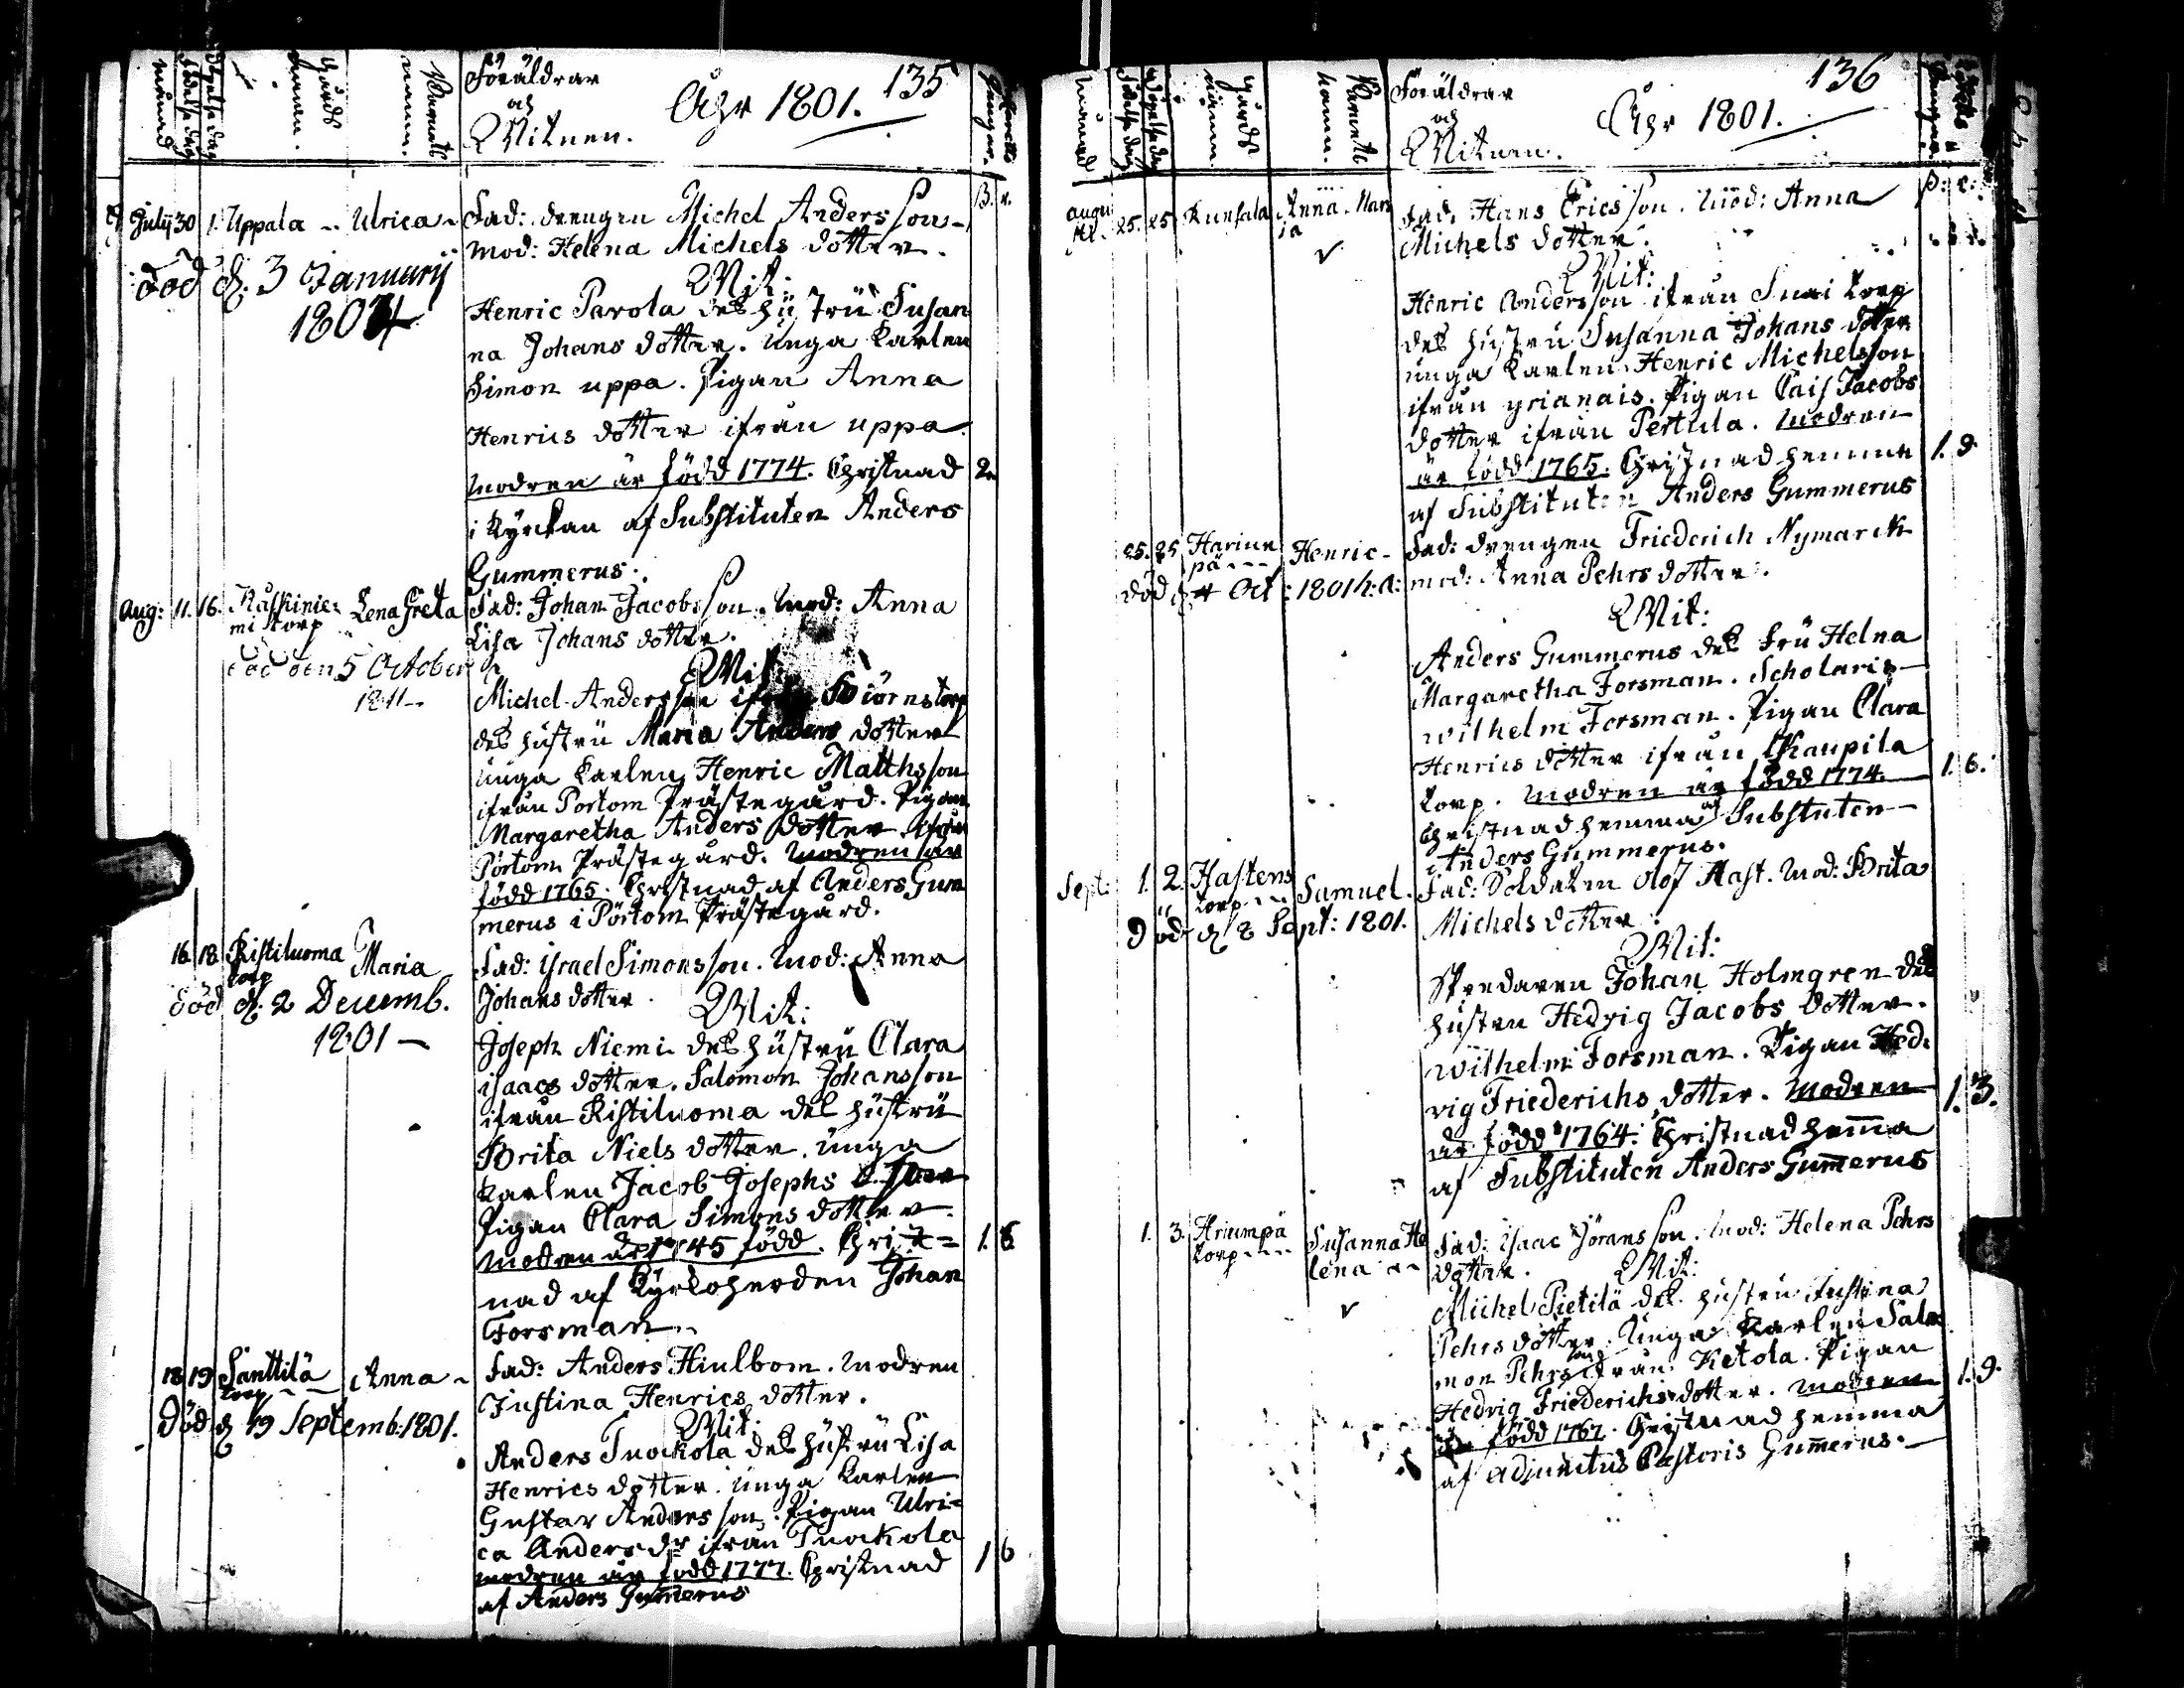 135
Föräldrar
och
Witnen.
Åhr 1801.
July 30 1. Uppala Ulrica
Fad: drengen Michel Andersson
mod: Helena Michels dotter.
död d. 3 January
1804
Wit:
Henric Parola des hustru Susan
na Johans dotter. unga Karlen
Simon uppa. Pigan Anna
Henrics dotter ifrån uppa
modren är född 1774. Christnad
i Kyrckan af Substituten Anders
Gummerus.
Aug: 11. 16. torp Lena Greta
Fad: Johan Jacobsson. mod: Anna
Lisa Johans dotter.
död den 5 October
1811
Wit:
Michel Andersson Biörnstorp
des hustru Maria Anders dotter
unga Karlen Henric Matthsson
ifrån Portom Prästegård. Pigan
Margaretha Anders dotter ifrån
Pörtom Prästegård. modren är
född 1765. Christnad af Anders Gum
merus i Pörtom Prästegård.
16 18 Ristiluoma torp Maria
Fad: Israel Simonsson. mod: Anna
Johans dotter.
död d. 2 Decemb.
1801
Wit:
Joseph Niemi des hustru Clara
isaacs dotter. Salomon Johansson
ifrån Ristiluoma des hustru
Brita Niels dotter. unga
Karlen Jacob Josephs
Pigan Clara Simons dotter
modren är 1745 född. Christ=
nad af Kyrkoherden Johan
Forsman.
18 19 Santtilä torp Anna
Fad: Anders Hiulbom. modren
Justina Henrics dotter.
Död d 19 Septemb: 1801.
Wit:
Anders Tuokola des hustru Lisa
Henrics dotter. unga Karlen
Gustav Andersson. Pigan Ulri=
ca Anders dr ifrån Tuokola
modren är född 1777. Christnad
af Anders Gummerus
1 6
136
Föräldrar
och
Witnen.
Åhr 1801.
augu
sti. 25. 25 Kunsala Anna Mar
ia
Fad. Hans Ericsson. mod: Anna
Michels dotter.
Wit:
Henric Andersson ifrån torp
des hustru Susanna Johans dotter
unga Karlen Henric Michelsson
ifrån yrianais. Pigan Cais Jacobs
dotter ifrån Perttula. modren
är född 1765. Christnad hemma
af Substituten Anders Gummerus
1. 9
25. 25 Hariun
pä Henric
Fad: drengen Friederich Nymarck
mod: Anna Pehrs dotter.
död d 4 Oct: 1801 h: a:
Wit:
Anders Gummerus des Fru Helna
Margaretha Forsman. Scholaris
wilhelm Forsman. Pigan Clara
Henrics dotter ifrån Kaupila
torp. modren är född 1774.
Christnad hemma af Substuten
Anders Gummerus.
1. 6.
Sept: 1. 2. Hastens
torp Samuel.
Fad: Soldaten Olof Hast. mod: Brita
Michels dotter
Död d 8 Sept: 1801.
Wit:
Johan Holmgren des
hustru Hedvig Jacobs dotter.
wilhelm Forsman. Pigan Hed
vig Friederichs dotter. modren
är född 1764. Christnad hemma
af Substituten Anders Gummerus
1. 3.
1. 3. Ariumpä
torp Susanna He
lena
Fad: Isaac Jöransson. mod: Helena Pehrs
dotter.
Wit:
Michel Pietilä des hustru Justina
Pehrs dotter. Unga Karlen Salo
mon Pehrsson ifrån Ketola. Pigan
Hedvig Friederichs dotter. modren
är född 1767. Christnad hemma
af adjunctus Pastoris Gummerus.
1. 9.